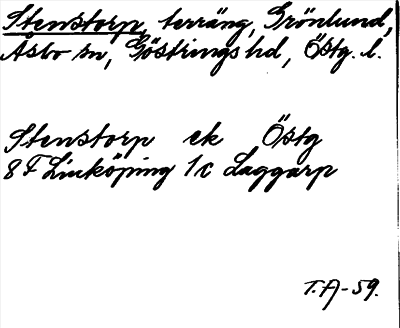 Stenstorp, terräng, Grönlund,
Åsbo sn, Göstrings hd, Östg. l.
Stenstorp ek Östg
8 F Linköping 1c Laggarp
T. A-59.